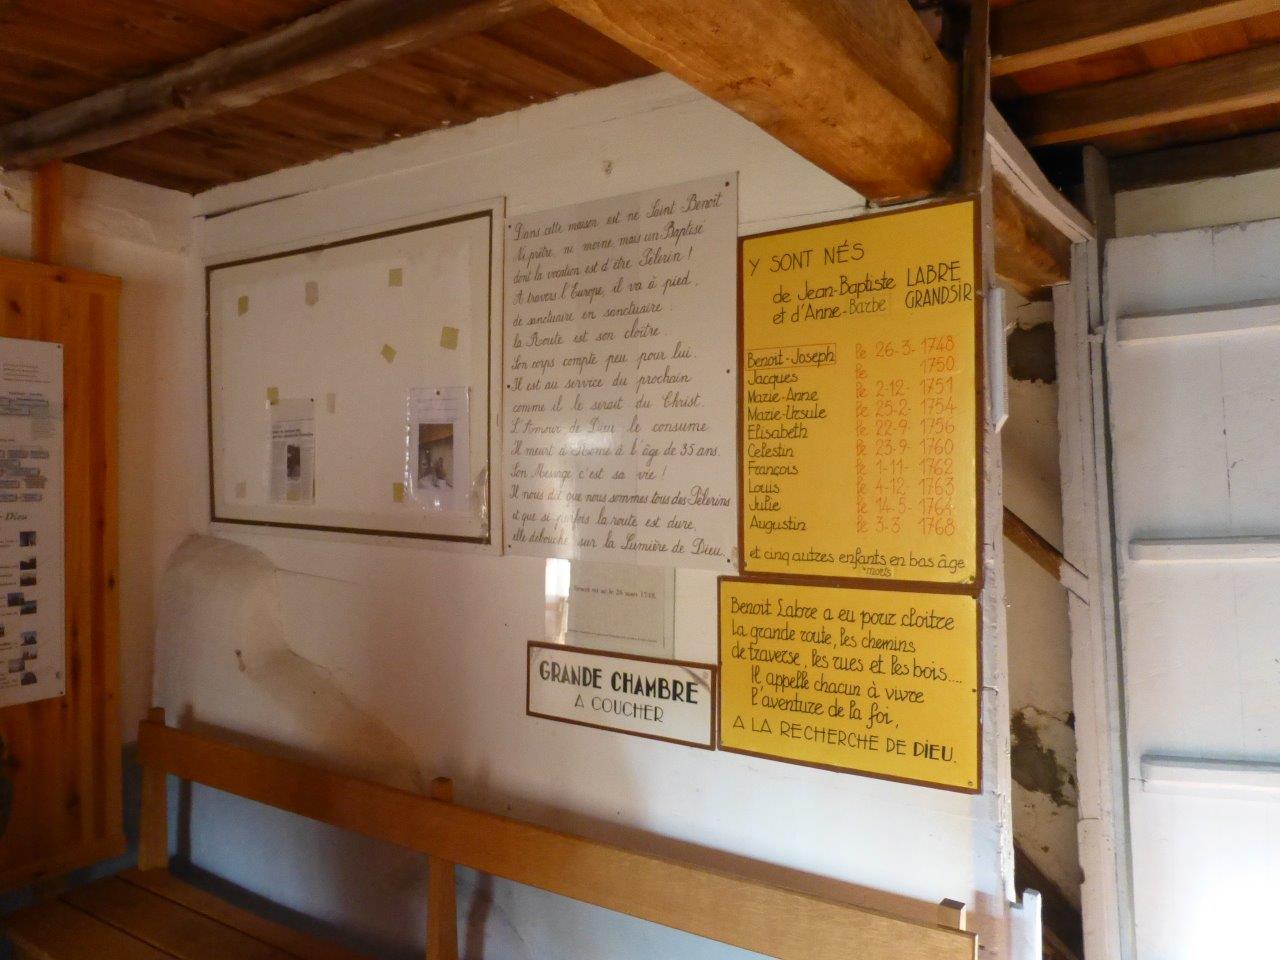 Dans cette maison est né Saint Benoît
Ni prêtre, ni moine, mais un Baptisé
dont la vocation est d'être Pèlerin !
A travers l'Europe, il va à pied,
de sanctuaire en sanctuaire :
la Route est son cloître.
Son corps compte peu pour lui.
Il est au service du prochain
comme il le serait du Christ.
L'Amour de Dieu le consume
Il meurt à Rome à l'âge de 35 ans.
Son Message c'est sa vie !
Il nous dit que nous sommes tous des Pèlerins
et que si parfois la route est dure,
elle débouche sur la Lumière de Dieu.
Y SONT NÉS
de Jean-Baptiste LABRE
et d'Anne-Barbe GRANDSIR
Benoît-Joseph le 26-3-1748
Jacques le 1750
Marie-Anne le 2-12-1751
Marie-Ursule le 25-2-1754
Elisabeth le 22-9-1756
Célestin le 23-9-1760
François le 1-11-1762
Louis le 4-12-1763
Julie le 14-5-1764
Augustin le 3-3 1768
et cinq autres enfants en bas âge
morts
Benoit Labre a eu pour cloître
la grande route, les chemins
de traverse, les rues et les bois....
Il appelle chacun à vivre
l'aventure de la foi,
A LA RECHERCHE DE DIEU.
est né le 26 mars 1748.
GRANDE CHAMBRE
A COUCHER
Dieu